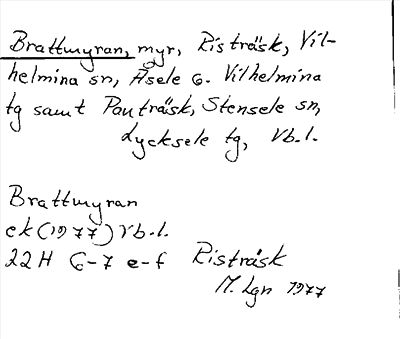 Brattmyran, myr, Risträsk, Vil-
helmina sn, Åsele o. Vilhelmina
tg samt Pauträsk, Stensele sn,
Lycksele tg, Vb.l.
Brattmyran
ek (1977) Vb.l.
22H 6-7 e-f Risträsk
M. Lgn 1977